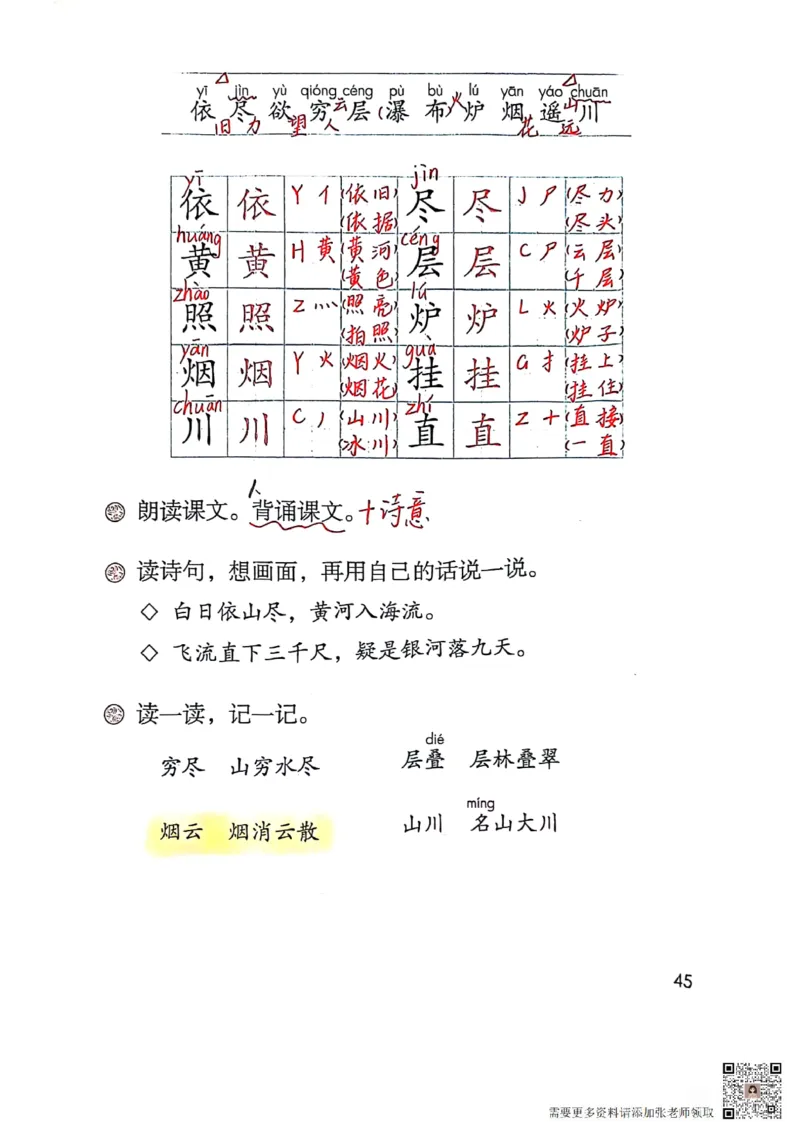 yī jìn yù qióng céng pù bù lú yān yáo chuān
依 尽 欲 穷 云 层 (瀑 布) 火 炉 烟 遥 山 川
旧 力 望 人 花 远
yī jìn
依 依 Y 亻 (依旧) (依据) 尽 尽 J 尸 (尽力) (尽头)
huáng céng
黄 黄 H 黄 (黄河) (黄色) 层 层 C 尸 (云层) (千层)
zhào lú
照 照 Z 灬 (照亮) (拍照) 炉 炉 L 火 (火炉) (炉子)
yān guà
烟 烟 Y 火 (烟火) (烟花) 挂 挂 G 扌 (挂上) (挂住)
chuān zhí
川 川 C 丿 (山川) (冰川) 直 直 Z 十 (直接) (一直)
朗读课文。背诵课文。+诗意
读诗句，想画面，再用自己的话说一说。
◇ 白日依山尽，黄河入海流。
◇ 飞流直下三千尺，疑是银河落九天。
读一读，记一记。
dié
穷尽 山穷水尽 层叠 层林叠翠
míng
烟云 烟消云散 山川 名山大川
45
需要更多资料请添加张老师领取